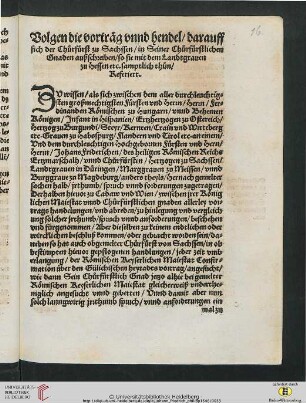 16.
Volgen die vorträg vnnd hendel/ darauff
sich der Chürfürst zu Sachssen/ in Seiner Chürfürstlichen
Gnaden außschreiben/ so sie mit dem Landtgrauen
zu Hessen etc. samptlich thün/
Referiert.
ZV wissen/ als sich zwischen dem aller durchleuchtig
sten großmechtigisten Fürsten vnd Herrn/ Herrn/ Fer
dinanden Römischen zu Hungarn/ vnnd Behemen
Königen/ Infant in Hispanien/ Ertzhertzogen zu Osterreich/
Hertzog zu Burgundi/ Steyr/ Kernten/ Crain vnd Wirtenberg
etc. Grauen zu Habspurg/ Flandern vnd Tirol etc. an einem/
Vnd dem durchleuchtigen Hochgebornen Fürsten vnd Herrn/
Herrn/ Johans Friderichen/ des heiligen Römischen Reichs
Ertzmarschalh/ vnnd Chürfürsten/ Hertzogen zu Sachssen/
Landtgrauen in Düringen/ Marggrauen zu Meissen/ vnnd
Burggraue zu Magdeburg/ anders theyls/ Hernach gemelter
sachen halb/ jrthumb/ spruch vnnd forderungen zugetragen/
Derhalben hieuor zu Cadaw vnd Wien/ zwischen jrer König
lichen Maiestat vnnd Chürfürstlichen gnaden allerley vor
trags handlungen/ vnd abreden/ zu hinlegung vnd vergleich
ung solcher jrthumb/ spruch vnnd anforderungen/ beschehen
vnd fürgenommen/ Aber dieselben zu keinem endtlichen oder
wircklichen beschluß kommen/ oder gebracht worden sein/ da
neben so hat auch obgemelter Chürfürst von Sachssen/ in ob
bestimpten hieuor gepflogen handlungen/ jeder zeit vmb
erlangung/ der Römischen Keyserlichen Maiestat Confir
mation vber den Gülichschen heyrats vortrag/ angesücht/
wie dann Sein Chürfürstlich Gnad jnso alhie bei gemelter
Römischen Keyserlichen Maiestat gleicherweiß vnderthe-
niglich angesücht vnnd gebetten/ Vnnd damit aber nun
solch langwirig jrrthumb spruch/ vnnd anforderungen ein
mal zu
UNIVERSITÄTS-
BIBLIOTHEK
HEIDELBERG